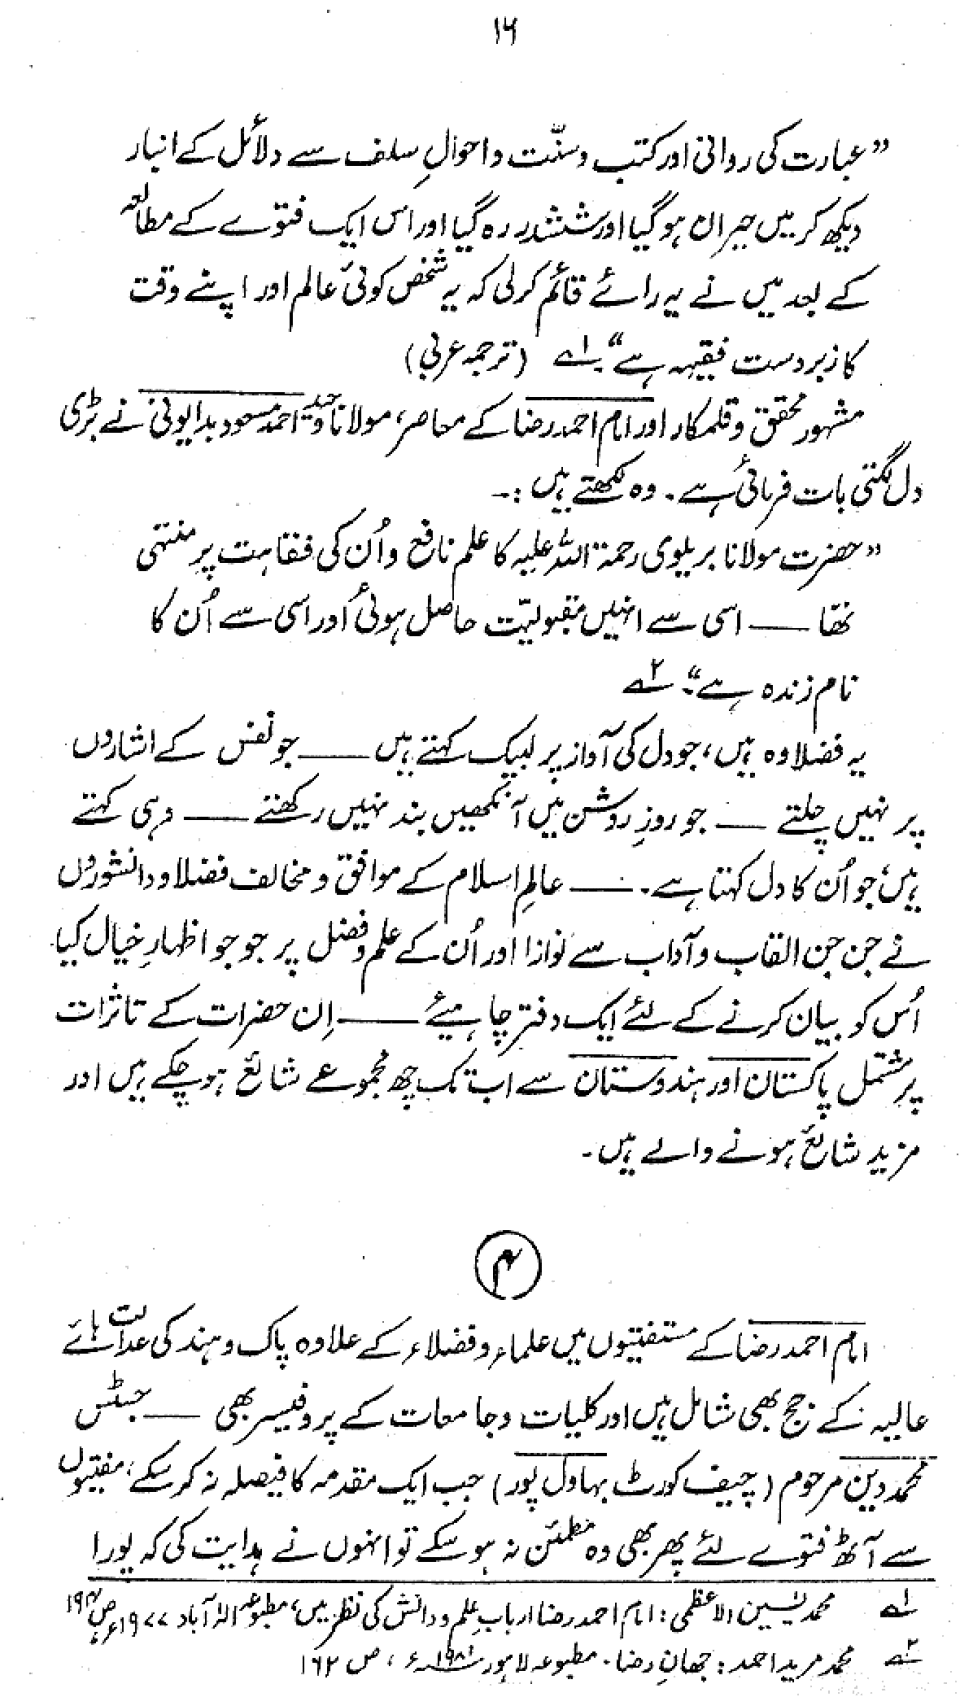 ۱۶
”عبارت کی روانی اور کتب و سنّت و احوالِ سلف سے دلائل کے انبار
دیکھ کر میں حیران ہو گیا اور ششدر رہ گیا اور اس ایک فتوے کے مطالعہ
کے بعد میں نے یہ رائے قائم کر لی کہ یہ شخص کوئی عالم اور اپنے وقت
کا زبردست فقیہہ ہے“۔ ۱ے (ترجمہ عربی)
مشہور محقق و قلمکار اور امام احمد رضا کے معاصر، مولانا وحید احمد مسعود بدایونی نے بڑی
دل لگتی بات فرمائی ہے۔ وہ لکھتے ہیں :۔
”حضرت مولانا بریلوی رحمۃ اللہ علیہ کا علم نافع و اُن کی فقاہت پر منتہی
تھا —— اسی سے انہیں مقبولیّت حاصل ہوئی اور اسی سے اُن کا
نام زندہ ہے“۔ ۲ے
یہ فضلا وہ ہیں، جو دل کی آواز پر لبیک کہتے ہیں —— جو نفس کے اشاروں
پر نہیں چلتے —— جو روزِ روشن میں آنکھیں بند نہیں رکھتے —— وہی کہتے
ہیں، جو اُن کا دل کہتا ہے۔ —— عالمِ اسلام کے موافق و مخالف فضلا و دانشوروں
نے جن جن القاب و آداب سے نوازا اور اُن کے علم و فضل پر جو جو اظہارِ خیال کیا
اُس کو بیان کرنے کے لئے ایک دفتر چاہیئے —— اِن حضرات کے تاثرات
پر مشتمل پاکستان اور ہندوستان سے اب تک چھ مجموعے شائع ہو چکے ہیں اور
مزید شائع ہونے والے ہیں۔
۴
امام احمد رضا کے مستفتیوں میں علماء و فضلاء کے علاوہ پاک و ہند کی عدالت ہائے
عالیہ کے جج بھی شامل ہیں اور کلیات و جامعات کے پروفیسر بھی —— جسٹس
محمد دین مرحوم (چیف کورٹ بہاول پور) جب ایک مقدمہ کا فیصلہ نہ کر سکے، مفتیوں
سے آٹھ فتوے لئے پھر بھی وہ مطمئن نہ ہو سکے تو انہوں نے ہدایت کی کہ پورا
۱ے محمد یٰسین الاعظمی : امام احمد رضا اربابِ علم و دانش کی نظر میں، مطبوعہ الہٰ آباد ۱۹۷۷ء، ص ۱۹۴
۲ے محمد مرید احمد : جہانِ رضا۔ مطبوعہ لاہور ۱۹۸۱ء، ص ۱۶۲